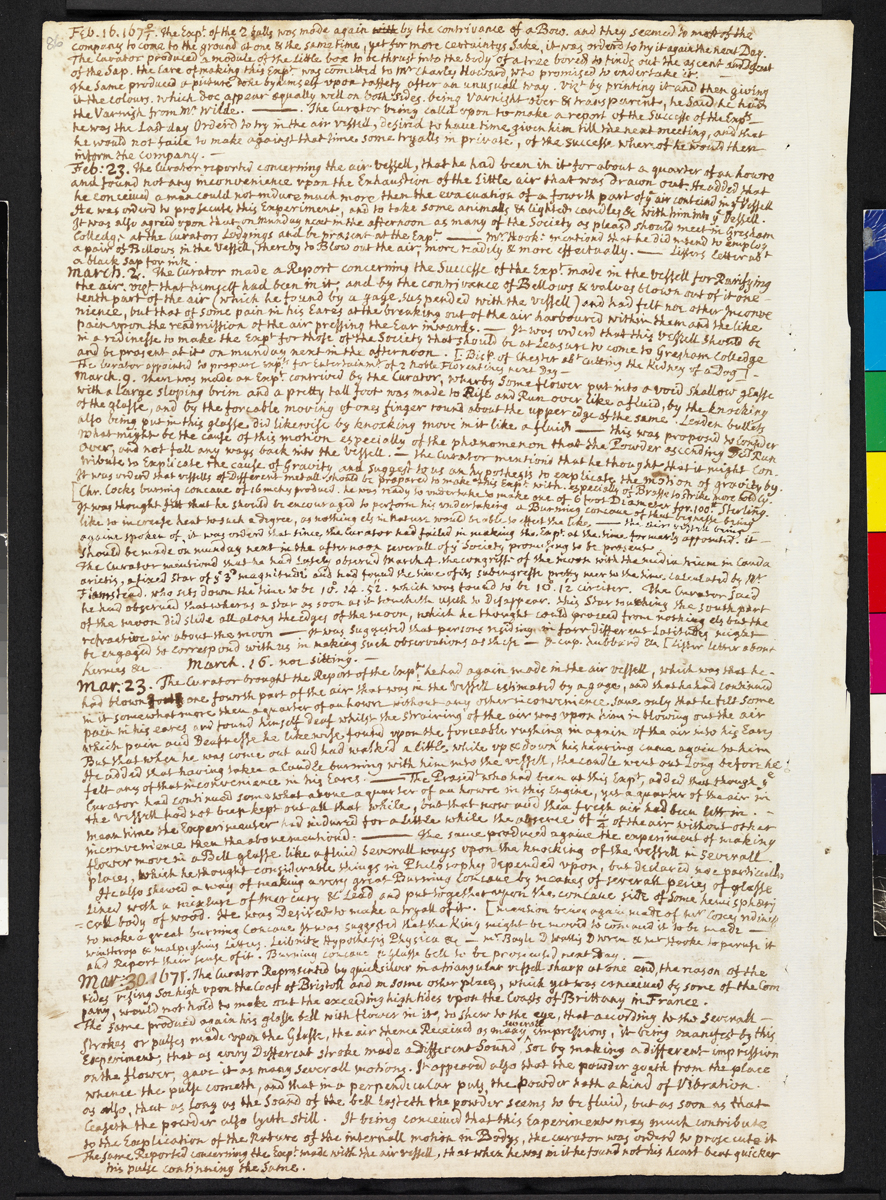 86
Feb. 16. 167 0/1. The Expt. of the 2 balls was made again with by the contrivance of a Bow. and they seemed to most of the
company to come to the ground at one & the same time, yet for more certaintys sake, it was orderd to try it again the next Day.
The Curator produced a module of the little box to be thrust into the body of a tree bored to finde out the ascent and Descent
of the Sap. the Care of making this Expt. was comitted to Mr Charles Howard who promised to undertake it.
The same produced a picture done by himself upon taffety after an unusuall way. vizt by printing it and then giving
it the colours. which doe appear equally well on both sides. being varnisht over & transparent, he said he had
the Varnish from Mr. Wilde. —— The Curator being calld upon to make a report of the Successe of the Expt.
he was the last day Orderd to try in the air vessell, desired to have time given him till the next meeting, and that
he would not faile to make against that time some tryalls in private, of the successe whereof he would then
inform the company. —
Feb: 23. The Curator reported concerning the air-vessell, that he had been in it for about a quarter of an houre
and found not any inconvenience upon the Exhaustion of the little air that was drawn out. He added that
he conceived a man could not endure much more then the evacuation of a fourth part of ye air containd in ye Vessell
He was orderd to prosecute this Experiment, and to take some animalls & lighted candles &c with him into ye Vessell.
It was also agreed upon that on Munday next in the afternoon as many of the Society as pleasd should meet in Gresham
Colledg, at the Curators Lodgings and be present at the Expt. —— Mr. Hook: mentiond that he did intend to employ
a pair of Bellows in the Vessell, thereby to Blow out the air, more readily & more effectually. — Listers Letter abt
a black sap for ink.
March. 2. The Curator made a Report concerning the Successe of the Expt. made in the vessell for Rarifying
the air. vizt that himself had been in it, and by the contrivance of Bellows & valves blown out of it one
tenth part of the air (which he found by a gage suspended with the vessell) and had felt noe other Inconve
nience, but that of some pain in his Eares at the breaking out of the air harboured within them and the like
pain upon the readmission of the air pressing the Ear inwards. — It was orderd that this vessell should be
in a rediness to make the Expt. for those of the Society that should be at Leasure to come to Gresham Colledge
and be present at it on munday next in the afternoon. [Bisp. of Chester abt cutting the Kidney of a Dog]
The Curator appointed to prepare Expts for Entertainmt of 2 noble florentines next Day—
March. 9. There was made an Expt. contrived by the Curator, wherby some flower put into a voed shallow glasse
with a Large Sloping brim and a pretty tall foot was made to Rise and Run over like a fluid, by the knocking
of the glasse, and by the forcable moving of ones finger round about the upper edge of the same. Leaden bullets
also being put in this glasse did likewise by knocking move in it like a fluid — this was proposed to consider
what might be the cause of this motion especially of the phenomenon that the Powder ascending did Run
over, and not fall any ways back into the vessell. — the Curator mentiond that he thought that it might con.
tribute to Explicate the cause of Gravity, and suggest to us an hypothesis to explicate the Motion of gravity by.
It was orderd that vessells of Different metall should be prepared to make this Expt. with. especially of Brasse to strike more boldly.
[Chr. Cocks burning concave of 16 inchy producd. he was ready to undertake to make one of 6 foot Diameter for 100lb. Sterling.
It was thought fitt that he should be encouraged to perform his undertaking a Burning concave of that bignesse being
like to increase heat to such a degree, as nothing els in nature would be able to effect the like, — the air vessell being
againe spoken of, it was orderd that since the Curator had failed in making the Expt. at the time formerly appointed. it—
should be made on munday next in the afternoon severall of ye Society promising to be present.
The Curator mentiond that he had lately observd March 4. the congress. of the moon with the media trium in Cauda
arietis, a fixed star of ye 3d magnitude and had found the time of its subingresse pretty neer to the time calculated by Mr.
Flamstead. who sits down the time to be 10. 14. 52. which was found to be 10. 12 circiter. The Curator said
he had observed that wheras a star as soon as it toucheth useth to disappear. this Star touching the South part
of the moon did slide all along the edges of the moon, which he thought could proceed from nothing els but the
refractive air about the moon — it was suggested that persons residing in farr different Latitudes might
be engaged to correspond with us in making such observations as these — & cap. hubbard &c [Lister letter about
Kermes &c March. 16. not sitting. —
Mar: 23. The Curator brought the Report of the Expt. he had again made in the air vessell, which was that he-
had blown out one fourth part of the air that was in the Vessell estimated by a gage, and that he had continued
in it somewhat more then a quarter of an howr without any other inconvenience, save only that he felt some
pain in his eares and found himself deaf whilst the straining of the air was upon him in blowing out the air
which pain and Deafnesse he likewise found upon the forceable rushing in again of the air into his Ears
But that when he was come out and had walked a little while up & down his hearing came again to him
He added that having taken a Candle burning with him into the vessell, the candle went out Long before he
felt any of that inconvenience in his Eares. —— The Presidt. who had been at this Expt., added that though ye
Curator had continued somewhat above a quarter of an howre in this Engine, yet a quarter of the air in
the vessell had not been kept out all that while, but that now and then fresh air had been lett in. -
mean time the Experimenter had indured for a little while the absence of 1/4 of the air without other
inconvenience then the above mentiond. —— The same produced againe the experiment of making
flower move in a Bell glasse like a fluid severall ways upon the knocking of the vessell in severall
places, which he thought considerable things in Philosophy depended upon, but declared noe particulars
He also shewed a way of making a very great Burning Concave by means of severall peices of glasse
Lined with a mixture of Mercury & Lead and put together upon the concave side of some hemispheri
=call body of wood. He was Desired to make a tryall of it. [mention being again made of mr Cocks rediness
to make a great burning Concave. It was suggested that the King might be moved to command it to be made —
winthrop & malpighius Letters. Leibnitz Hypothesis Physica &c — Mr. Boyle D Wallis D Wren & Mr Hooke to peruse it
and Report their sense of it. Burning concave & glasse bell to be prosecuted next Day. —
Mar: 30. 1671. The Curator Represented by quicksilver in a triangular vessell sharp at one end, the reason of the
tides rising soe high upon the Coast of Bristoll and in some other places, which yet was conceived by some of the Com
pany, would not hold to make out the exceeding high tides upon the Coasts of Brittany in France.
The same produced again his glasse bell with flower in it, to shew to the eye, that according to the severall—
strokes or pulses made upon the Glasse, the air thence Received as many severall impressions, it being manifest by this
Experiment, that as every Different stroke made a different sound, soe by making a different impression
on the flower, gave it as many severall motions. It appeared also that the powder goeth from the place
whence the pulse cometh, and that in a perpendicular puls, the powder hath a kind of Vibration.
as also, that as long as the Sound of the bell lasteth the powder seems to be fluid, but as soon as that
ceaseth the powder also lyeth still. It being conceived that this Experiment may much contribute
to the Explication of the Nature of the internall motion in Bodys, the curator was orderd to prosecute it
The same Reported concerning the Expt. made with the air vessell, that when he was in it he found not his heart beat quicker
his pulse continuing the same.